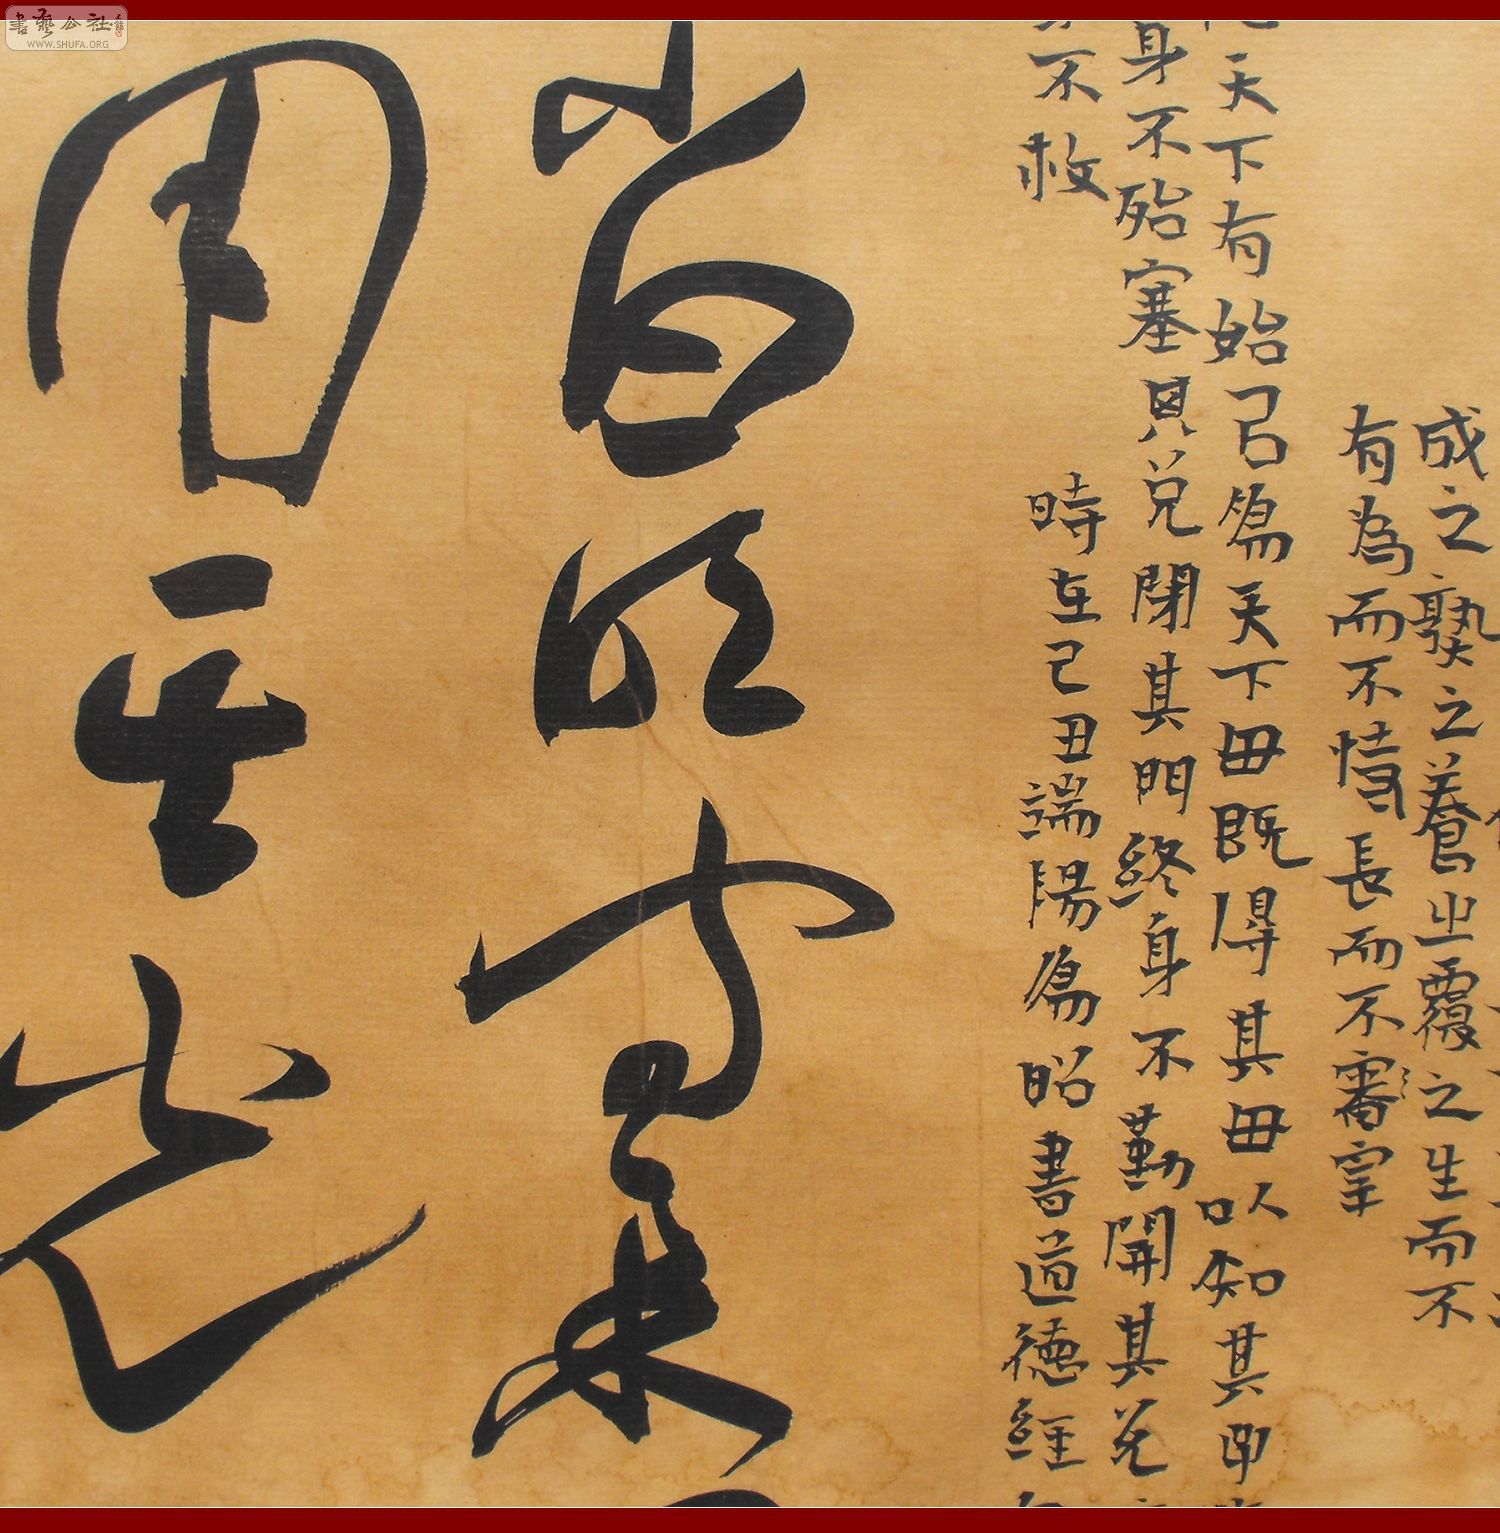 書藝公社
WWW.SHUFA.ORG
成之熟之養㞢覆之生而不
有為而不恃長而不審宰
天下有始㠯為天下毋既得其毋以知其
身不殆塞其兌閉其門終身不勤開其兌
不救
時在己丑端陽為昭書道德經
小曰明守柔
用其光